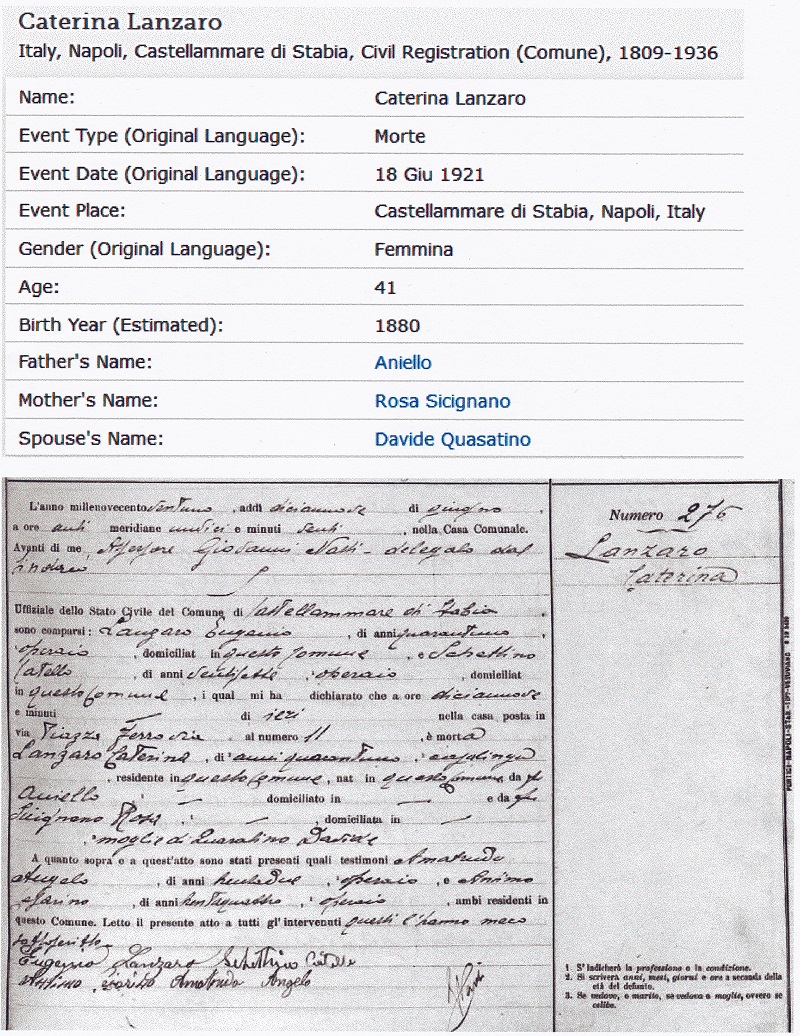 Caterina Lanzaro
Italy, Napoli, Castellammare di Stabia, Civil Registration (Comune), 1809-1936
Name: Caterina Lanzaro
Event Type (Original Language): Morte
Event Date (Original Language): 18 Giu 1921
Event Place: Castellammare di Stabia, Napoli, Italy
Gender (Original Language): Femmina
Age: 41
Birth Year (Estimated): 1880
Father's Name: Aniello
Mother's Name: Rosa Sicignano
Spouse's Name: Davide Quasatino
L'anno millenovecento ventuno, addì diciannove di giugno,
a ore anti meridiane undici e minuti venti, nella Casa Comunale.
Avanti di me, Giovanni delegato dal
Sindaco
Uffiziale dello Stato Civile del Comune di Castellammare di Stabia
sono comparsi: Lanzaro Eugenio, di anni quarantuno,
operaio, domiciliat in questo Comune, e Schettino
Catello, di anni ventisette, operaio, domiciliat
in questo Comune, i qual mi ha dichiarato che a ore diciannove
e minuti — di ieri nella casa posta in
via Piazza Ferrovia al numero 11, è morta
Lanzaro Caterina, di anni quarantuno, casalinga
, residente in questo Comune, nat in questo Comune da fu
Aniello — domiciliato in — e da fu
Sicignano Rosa, — , domiciliata in —
, moglie di Quaratino Davide
A quanto sopra e a quest'atto sono stati presenti quali testimoni Amatruda
Angelo, di anni trentadue, operaio, e
, di anni trentaquattro, operaio, ambi residenti in
questo Comune. Letto il presente atto a tutti gl'intervenuti questi l'hanno meco
sottoscritto
Eugenio Lanzaro Schettino Catello
Amatruda Angelo
Numero 276
Lanzaro
Caterina
1. S'indicherà la professione o la condizione.
2. Si scriverà anni, mesi, giorni e ore a seconda della
età del defunto.
3. Se vedovo, o marito, se vedova o moglie, ovvero se
celibe.